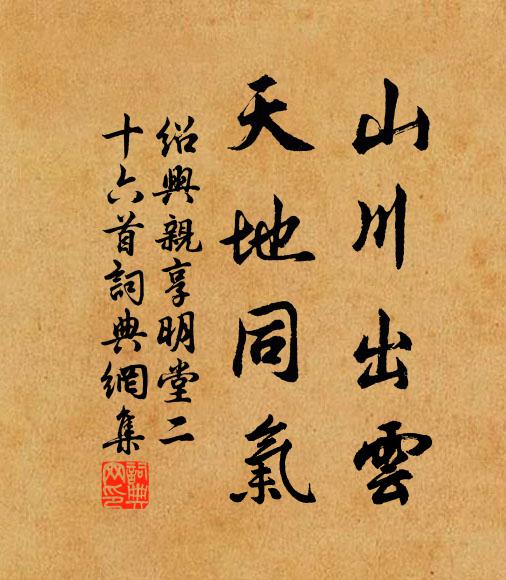 山川出雲
天地同氣
紹興親享明堂二
十六首詞典網集
詞典網印